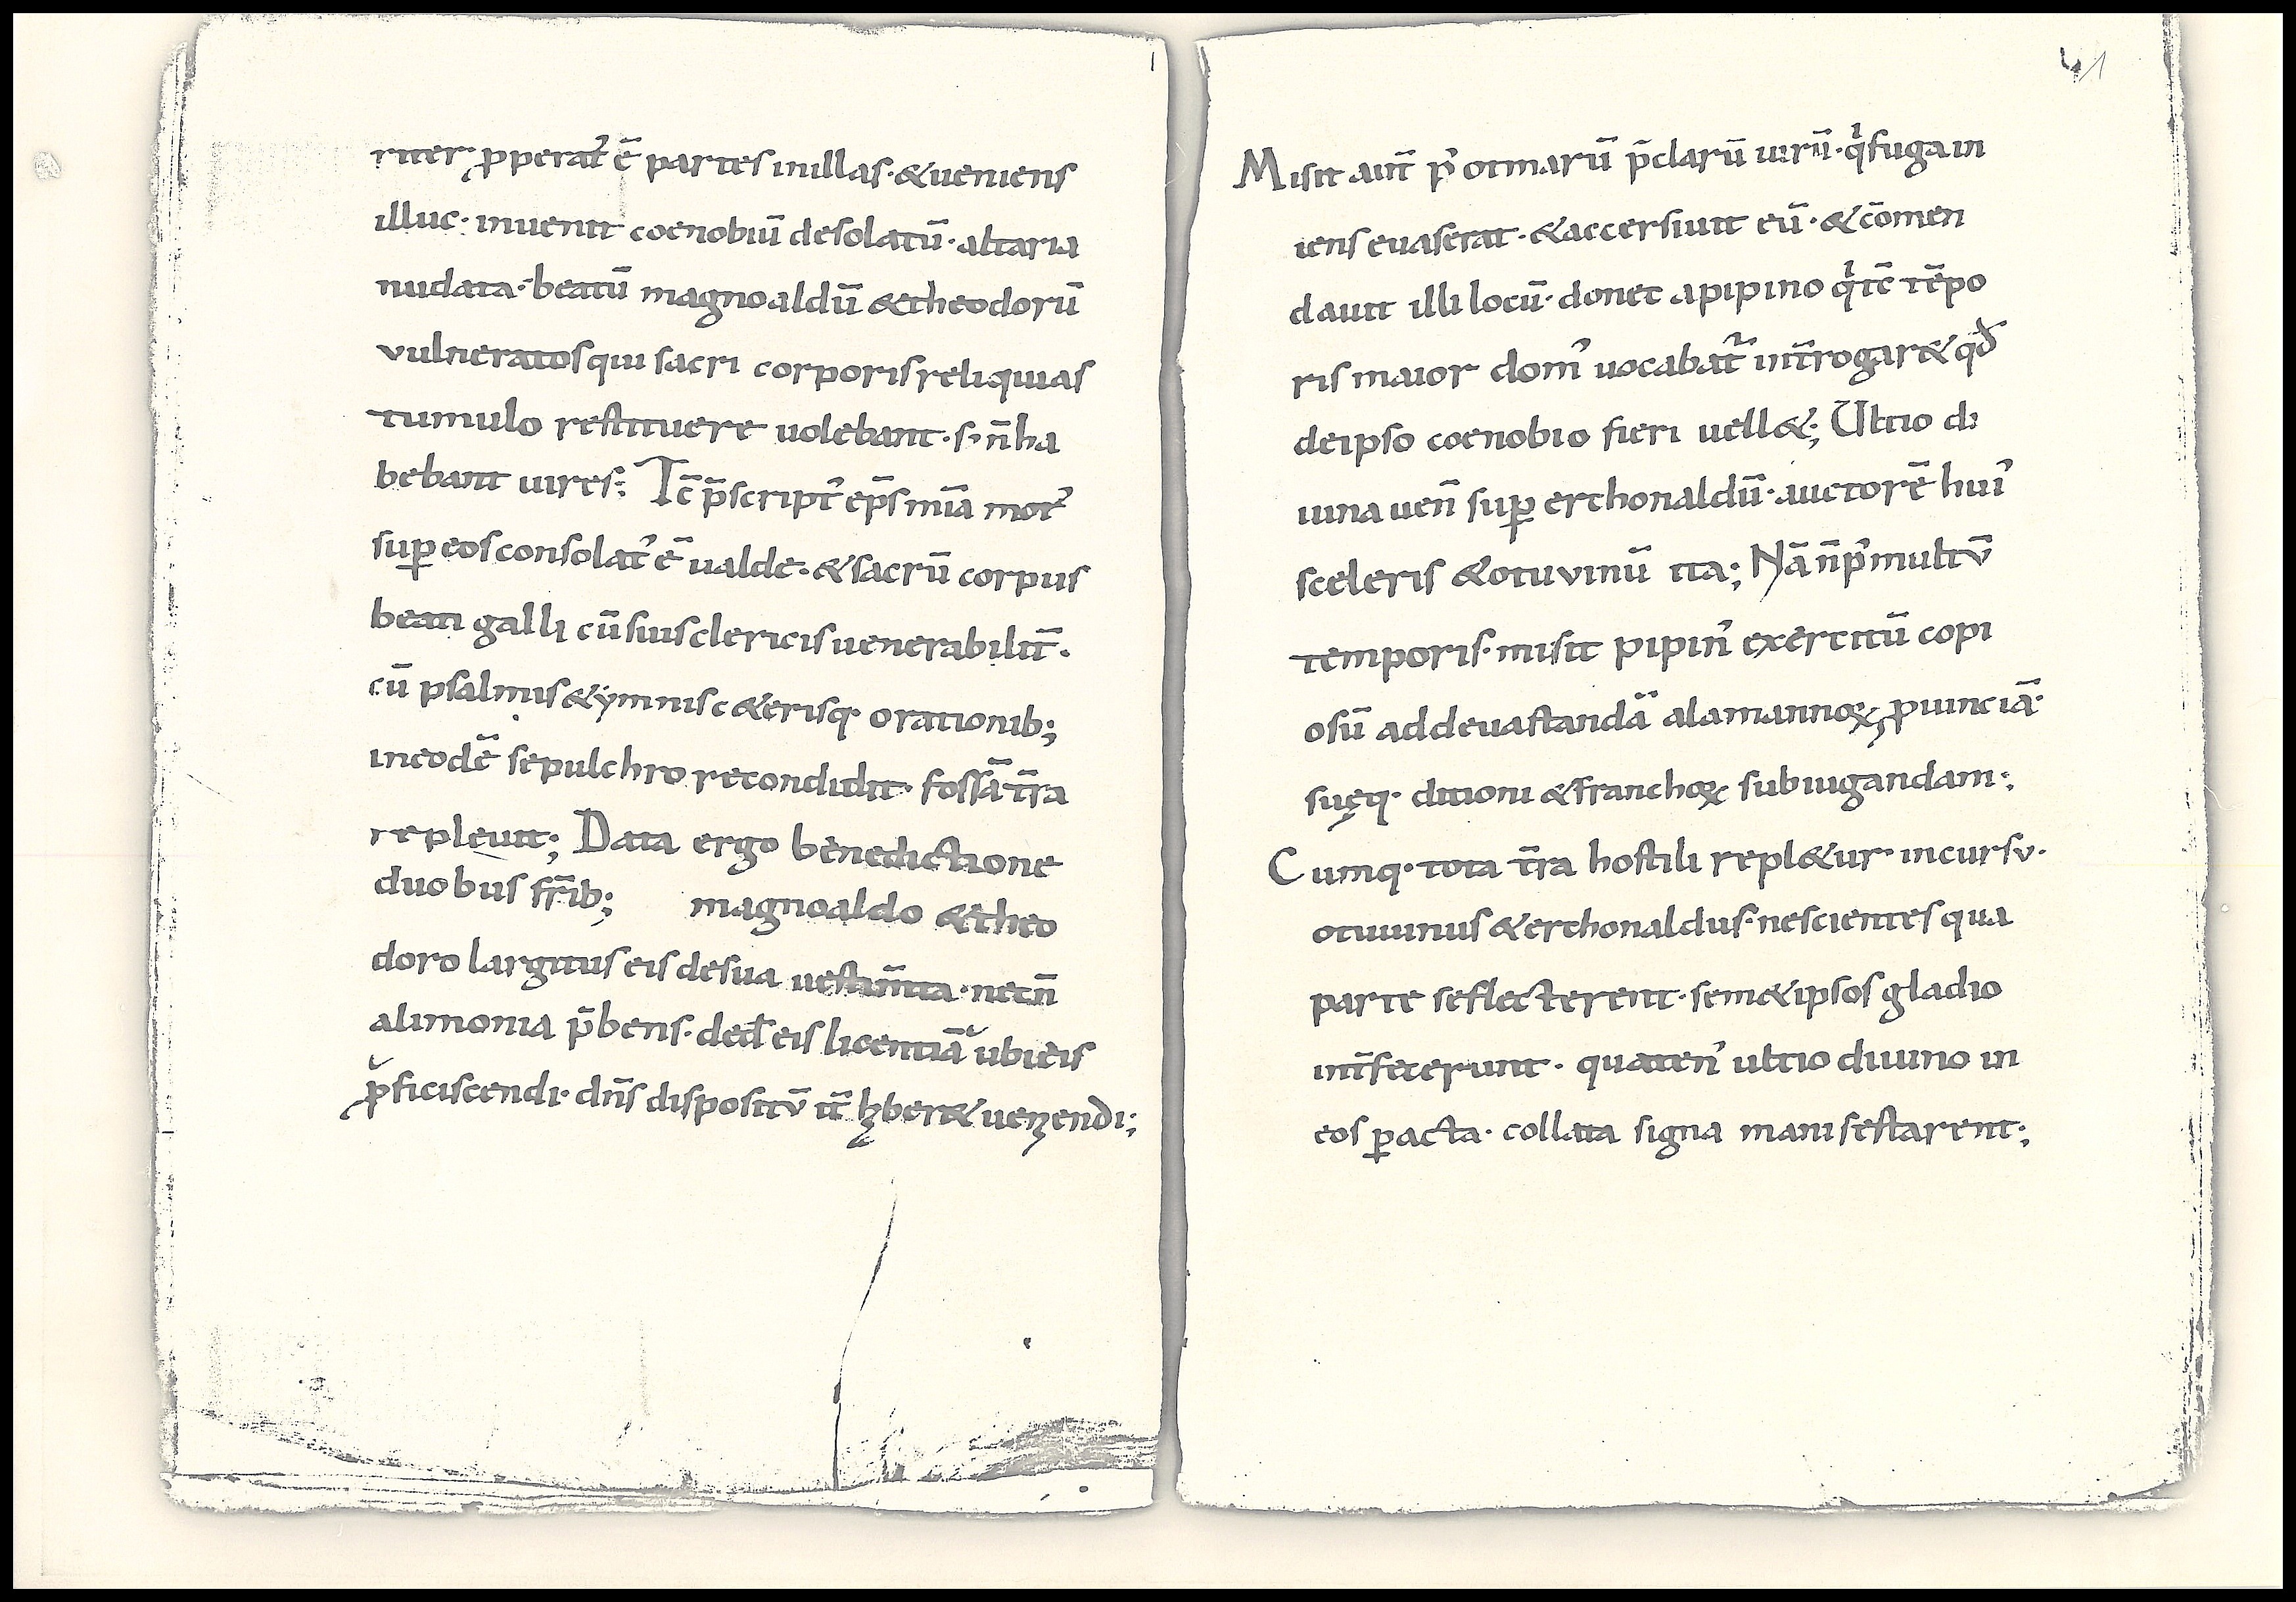 riter ꝓperat᾽ ē partes inillas · & ueniens
illuc · inuenit coenobiū desolatū · altaria
nudata · beatū magnoaldū & theodorū
vulneratos qui sacri corporis reliquias
tumulo restituere uolebant · s; n̄ ha
bebant uires; Tc̄ p̄script᾽ ep̄s mīa mot᾽
suꝑ eos consolat᾽ ē ualde · & sacrū corpus
beati galli cū suis clericis uenerabilit̄ ·
cū psalmis & ẏmnis c&erisq· orationib;
ineodē sepulchro recondidit · fossā t̄ra
repleuit; Data ergo benedictione
duobus fr̄ib; magnoaldo & theo
doro largitus eis de sua uestim̄ta · necn̄
alimonia p̄bens · ded̄ eis licentiā ubi eis
ꝓficiscendi · dn̄s dispositū it̄ hꝫber& ueꝫendi;
41
Misit aut̄ p᾽ otmarū p̄clarū uirū · qͥ fugain
iens euaserat · & accersiuit eū · & c̄omen
dauit illi locū · donec a pipino qͥ tc̄ tēpo
ris maior dom᾽ uocabat᾽ int̄rogar& qđ
deipso coenobio fieri uell&; Ultio di
uina uen̄ suꝑ erchonaldū · auctorē hui᾽
sceleris & otuvinū ita; Nā n̄ p᾽ multū
temporis · misit pipin᾽ exercitū copi
osū ad deuastandā alamannoꝝ ꝓuinciā ·
suęq· ditioni & franchoꝝ subiugandam;
Cumq· tota t̄ra hostili repl&ur incursu ·
otuuinus & erchonaldus · nescientes qua
parte se flecterent · sem&ipsos gladio
int̄fecerunt · quaten᾽ ultio diuino in
eos ꝑacta · collata signa manifestarent;